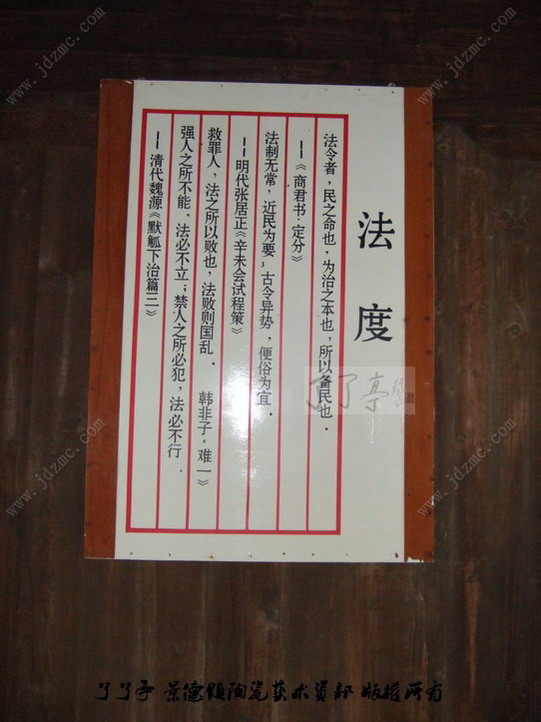 法度
法令者，民之命也，为治之本也，所以备民也．
——《商君书·定分》
法制无常，近民为要，古今异势，便俗为宜．
——明代张居正《辛未会试程策》
救罪人，法之所以败也，法败则国乱．　韩非子，难一》
强人之所不能、法必不立；禁人之所必犯，法必不行．
——清代魏源《默觚下治篇三》
了了亭
www.jdzmc.com
www.jdzmc.com
www.jdzmc.com
www.jdzmc.com
www.jdzmc.com
www.jdzmc.com
了了亭 景德镇陶瓷艺术资讯 版权所有